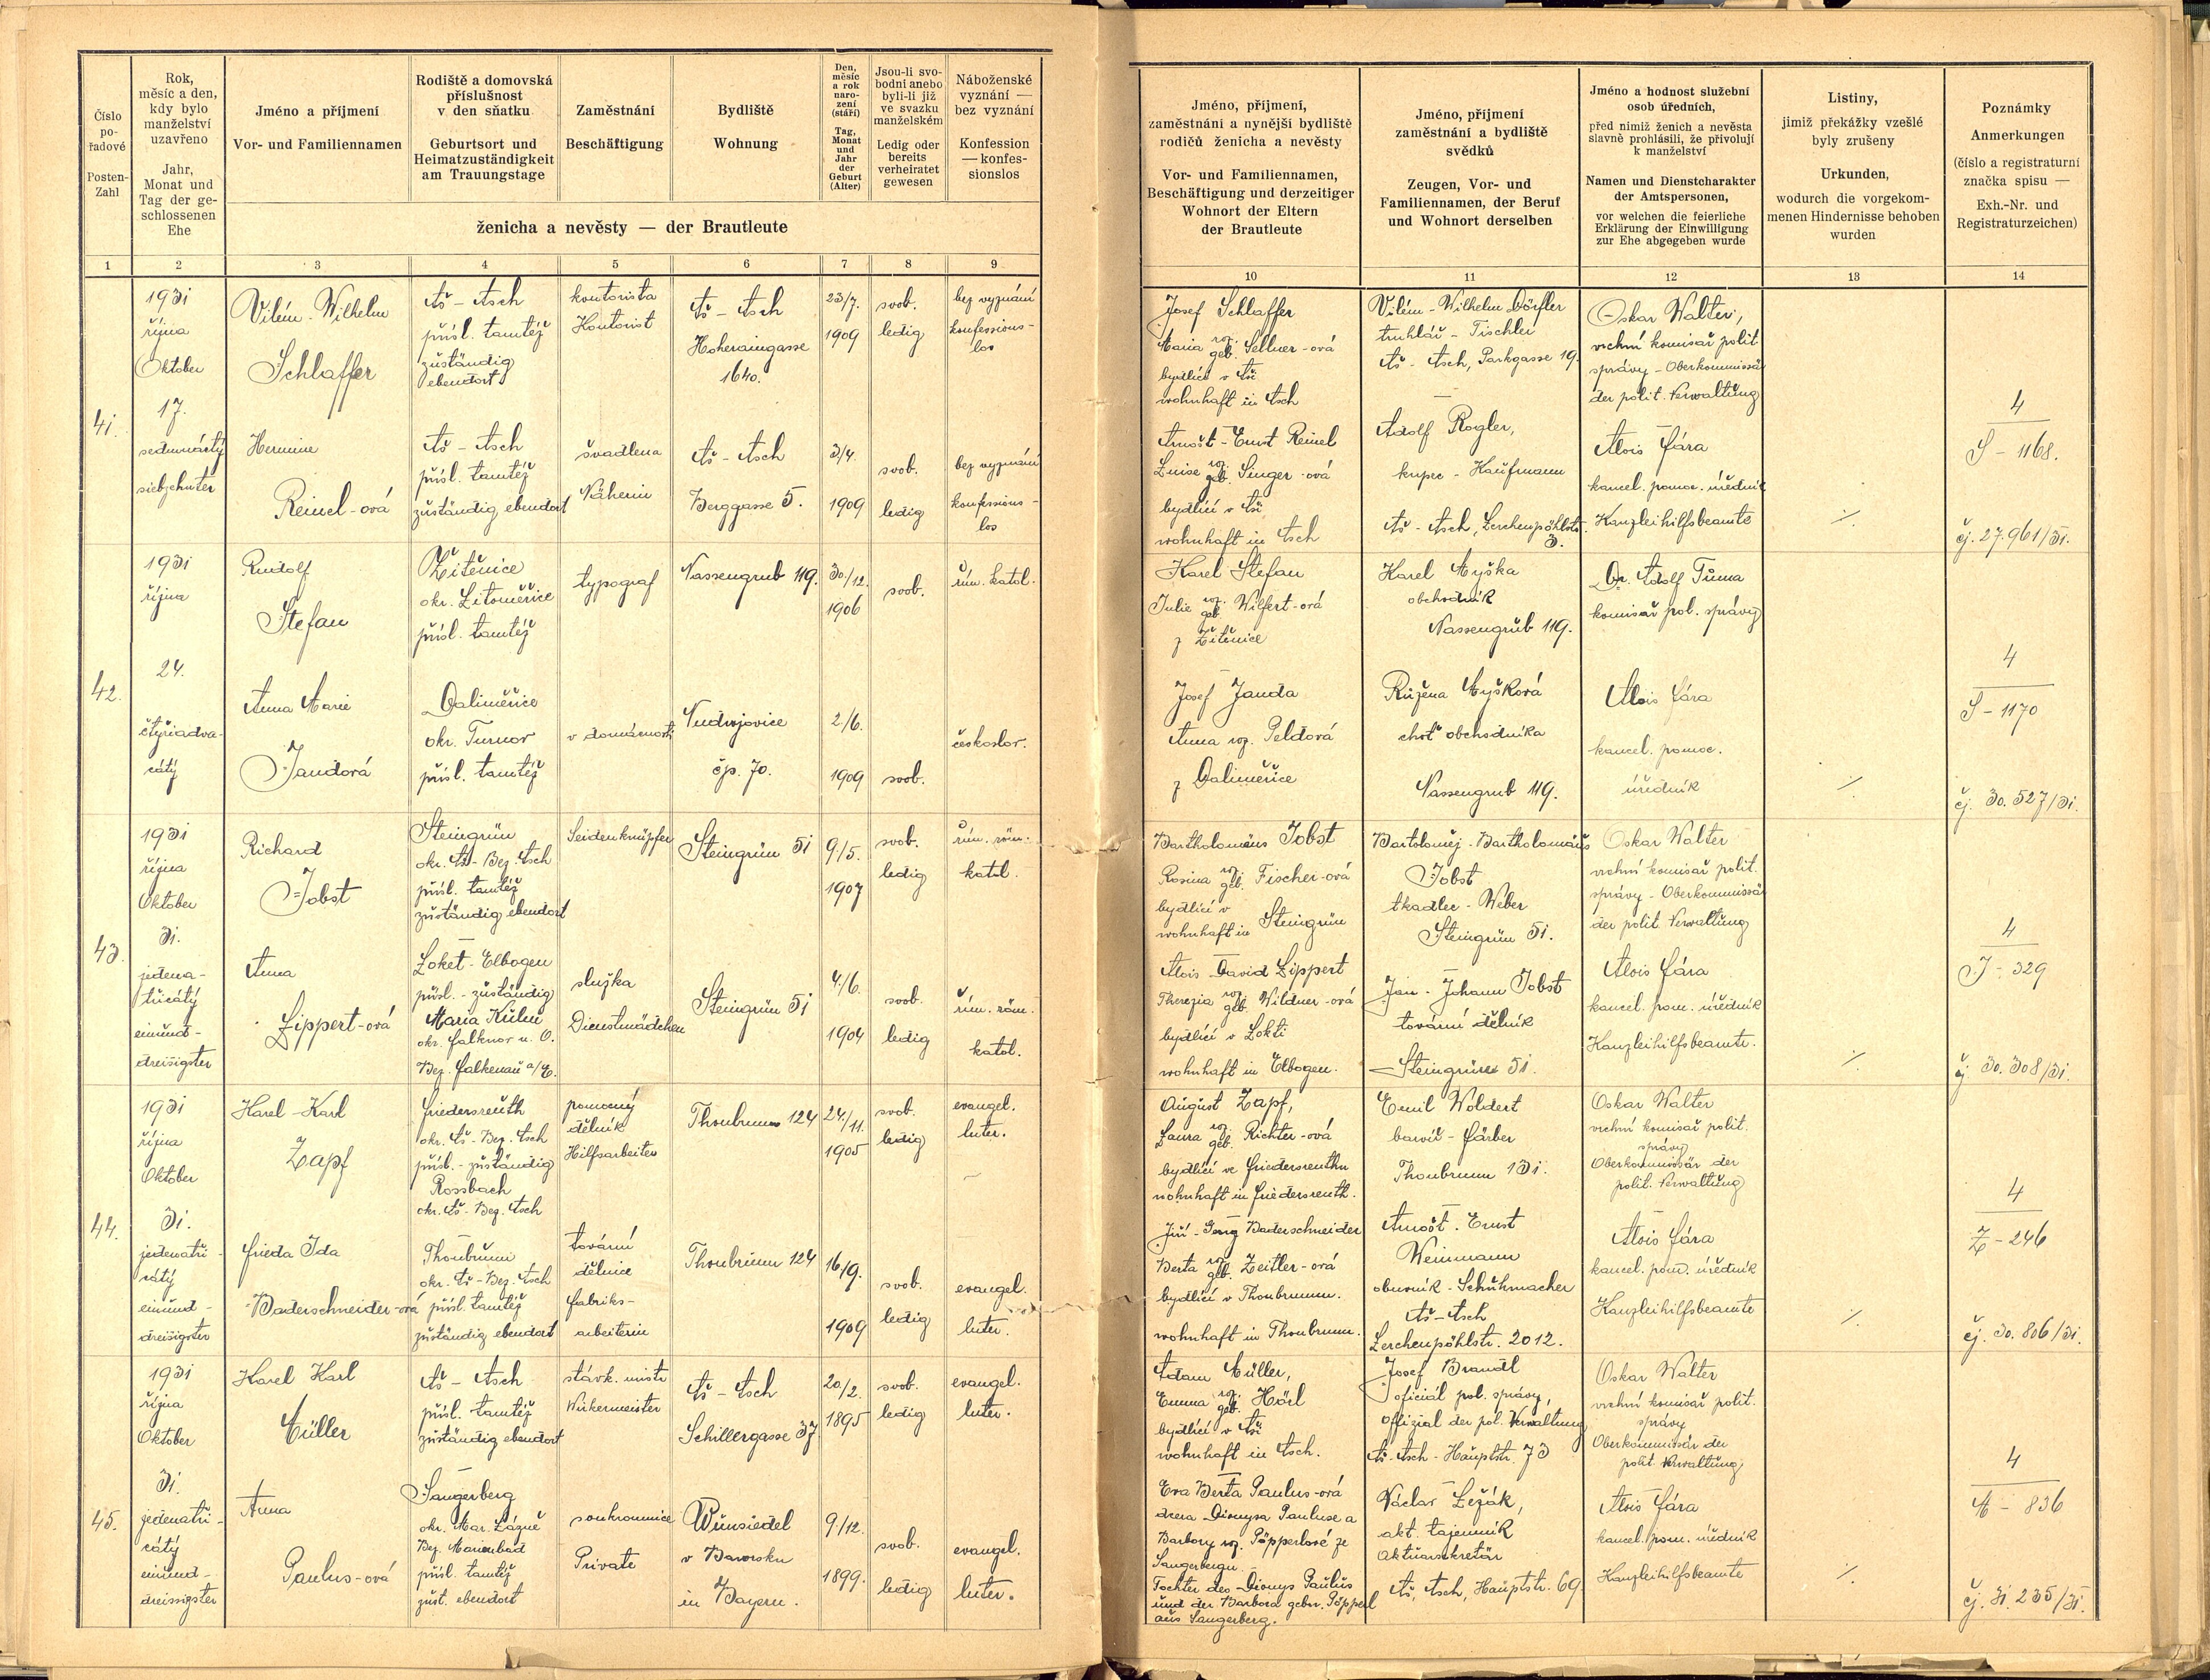 Číslo
po-
řadové
Posten-
Zahl
Rok,
měsíc a den,
kdy bylo
manželství
uzavřeno
Jahr,
Monat und
Tag der ge-
schlossenen
Ehe
Jméno a příjmení
Vor- und Familiennamen
Rodiště a domovská
příslušnost
v den sňatku
Geburtsort und
Heimatzuständigkeit
am Trauungstage
Zaměstnání
Beschäftigung
Bydliště
Wohnung
Den,
měsíc
a rok
naro-
zení
(stáří)
Tag,
Monat
und
Jahr
der
Geburt
(Alter)
Jsou-li svo-
bodni anebo
byli-li již
ve svazku
manželském
Ledig oder
bereits
verheiratet
gewesen
Náboženské
vyznání —
bez vyznání
Konfession
— konfes-
sionslos
ženicha a nevěsty — der Brautleute
1 2 3 4 5 6 7 8 9
41.
1931
října
Oktober
17.
sedmnáctý
siebzehnter
Vilém - Wilhelm
Schlaffer
Aš - Asch
přísl. tamtéž
zuständig
ebendort
kontorista
Kontorist
Aš - Asch
Hoheraingasse
1640.
23/7.
1909
svob.
ledig
bez vyznání
konfessions-
los
Hermine
Reinel-ová
Aš - Asch
přísl. tamtéž
zuständig ebendort
švadlena
Näherin
Aš - Asch
Berggasse 5.
3/4.
1909
svob.
ledig
bez vyznání
konfessions-
los
42.
1931
října
24.
čtyřiadva-
cátý
Rudolf
Stefan
Žitěnice
okr. Litoměřice
přísl. tamtéž
typograf
Nassengrub 119.
30/12.
1906
svob.
řím. katol.
Anna Marie
Jandová
Daliměřice
okr. Turnov
přísl. tamtéž
v domácnosti
Nudvojovice
čp. 70.
2/6.
1909
svob.
českoslov.
43.
1931
října
Oktober
31.
jedena-
třicátý
einund-
dreißigster
Richard
Jobst
Steingrün
okr. Aš - Bez. Asch
přísl. tamtéž
zuständig ebendort
Seidenknüpfer
Steingrün 51
9/5.
1907
svob.
ledig
řím. röm.
katol.
Anna
Lippert-ová
Loket - Elbogen
přísl. - zuständig
Maria Kulm
okr. Falknov n. O.
Bez. Falkenau a/E.
služka
Dienstmädchen
Steingrün 51
4/6.
1904
svob.
ledig
řím. röm.
katol.
44.
1931
října
Oktober
31.
jedenatři-
cátý
einund-
dreißigster
Karel - Karl
Zapf
Friedersreuth
okr. Aš - Bez. Asch
přísl. - zuständig
Rossbach
okr. Aš - Bez. Asch
pomocný
dělník
Hilfsarbeiter
Thonbrunn 124
24/11.
1905
svob.
ledig
evangel.
luter.
Frieda Ida
Baderschneider-ová
Thonbrunn
okr. Aš - Bez. Asch
přísl. tamtéž
zuständig ebendort
tovární
dělnice
Fabriks-
arbeiterin
Thonbrunn 124
16/9.
1909
svob.
ledig
evangel.
luter.
45.
1931
října
Oktober
31.
jedenatři-
cátý
einund-
dreissigster
Karel Karl
Müller
Aš - Asch
přísl. tamtéž
zuständig ebendort
stávk. mistr
Wirkermeister
Aš - Asch
Schillergasse 37
20/2.
1895
svob.
ledig
evangel.
luter.
Anna
Paulus-ová
Sangerberg
okr. Mar. Lázně
Bez. Marienbad
přísl. tamtéž
zust. ebendort
soukromnice
Private
Wunsiedel
v Bavorsku
in Bayern.
9/12.
1899.
svob.
ledig
evangel.
luter.
Jméno, příjmení,
zaměstnání a nynější bydliště
rodičů ženicha a nevěsty
Vor- und Familiennamen,
Beschäftigung und derzeitiger
Wohnort der Eltern
der Brautleute
Jméno, příjmení
zaměstnání a bydliště
svědků
Zeugen, Vor- und
Familiennamen, der Beruf
und Wohnort derselben
Jméno a hodnost služební
osob úředních,
před nimiž ženich a nevěsta
slavně prohlásili, že přivolují
k manželství
Namen und Dienstcharakter
der Amtspersonen,
vor welchen die feierliche
Erklärung der Einwilligung
zur Ehe abgegeben wurde
Listiny,
jimiž překážky vzešlé
byly zrušeny
Urkunden,
wodurch die vorgekom-
menen Hindernisse behoben
wurden
Poznámky
Anmerkungen
(číslo a registraturní
značka spisu —
Exh.-Nr. und
Registraturzeichen)
10 11 12 13 14
Josef Schlaffer
Maria roz. geb. Sellner-ová
bydlící v Aši
wohnhaft in Asch
Arnošt - Ernst Reinel
Luise roz. geb. Singer-ová
bydlící v Aši
wohnhaft in Asch
Vilém - Wilhelm Dörfler
truhlář - Tischler
Aš - Asch, Parkgasse 19.
Adolf Rogler,
kupec - Kaufmann
Aš - Asch, Lerchenpöhlstr.
3.
Oskar Walter,
vrchní komisař polit.
správy - Oberkommissär
der polit. Verwaltung
Alois Fára
kancel. pomoc. úředník
Kanzleihilfsbeamte
./.
4
S - 1168.
čj. 27.961/31.
Karel Stefan
Julie roz. geb. Wilfert-ová
z Žitěnice
Josef Janda
Anna roz. Peldová
z Daliměřice
Karel Myška
obchodník
Nassengrub 119.
Růžena Myšková
choť obchodníka
Nassengrub 119.
Dr. Adolf Tůma
komisař pol. správy
Alois Fára
kancel. pomoc.
úředník
./.
4
S - 1170
čj. 30.527/31.
Bartholomäus Jobst
Rosina roz. geb. Fischer-ová
bydlící v
wohnhaft in Steingrün
Alois David Lippert
Therezia roz. geb. Wildner-ová
bydlící v Lokti
wohnhaft in Elbogen.
Bartoloměj - Bartholomäus
Jobst
tkadlec - Weber
Steingrün 51.
Jan - Johann Jobst
tovární dělník
Steingrün 51.
Oskar Walter
vrchní komisař polit.
správy - Oberkommissär
der polit. Verwaltung
Alois Fára
kancel. pom. úředník
Kanzleihilfsbeamte.
./.
4
J - 329
čj. 30.308/31.
August Zapf,
Laura roz. geb. Richter-ová
bydlící ve Friedersreuthu
wohnhaft in Friedersreuth.
Jiří - Georg Baderschneider
Berta roz. geb. Zeitler-ová
bydlící v Thonbrunnu.
wohnhaft in Thonbrunn.
Emil Woldert
barvíř - Färber
Thonbrunn 131.
Arnošt - Ernst
Weinmann
obuvník - Schuhmacher
Aš - Asch
Lerchenpöhlstr. 2012.
Oskar Walter
vrchní komisař polit.
správy
Oberkommissär der
polit. Verwaltung
Alois Fára
kancel. pom. úředník
Kanzleihilfsbeamte
./.
4
Z - 246
čj. 30.806/31.
Adam Müller,
Emma roz. geb. Hörl
bydlící v Aši
wohnhaft in Asch.
Eva Berta Paulus-ová
dcera Dionysa Pauluse a
Barbory roz. Pöpperlové ze
Sangerbergu.
Tochter des Dionys Paulus
und der Barbora gebor. Pöpperl
aus Sangerberg.
Josef Brandl
oficiál pol. správy,
Offizial der pol. Verwaltung
Aš - Asch - Hauptstr. 73
Václav Ležák,
akt. tajemník
Aktuarsekretär
Aš, Asch, Hauptstr. 69.
Oskar Walter
vrchní komisař polit.
správy
Oberkommissär der
polit. Verwaltung
Alois Fára
kancel. pom. úředník
Kanzleihilfsbeamte
./.
4
M - 836
čj. 31.235/31.